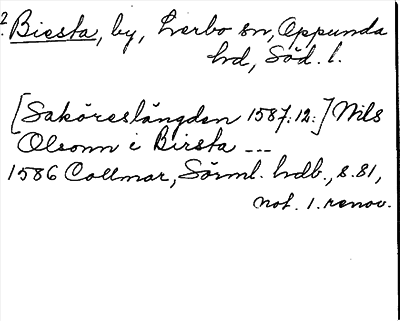 2. Biesta, by, Lerbo sn, Oppunda
hd, Söd. l.
[Saköreslängden 1587:12:] Nils
Olsonn i Birsta ---
1586 Collmar, Sörml. hdb., s. 81,
not. 1. renov.